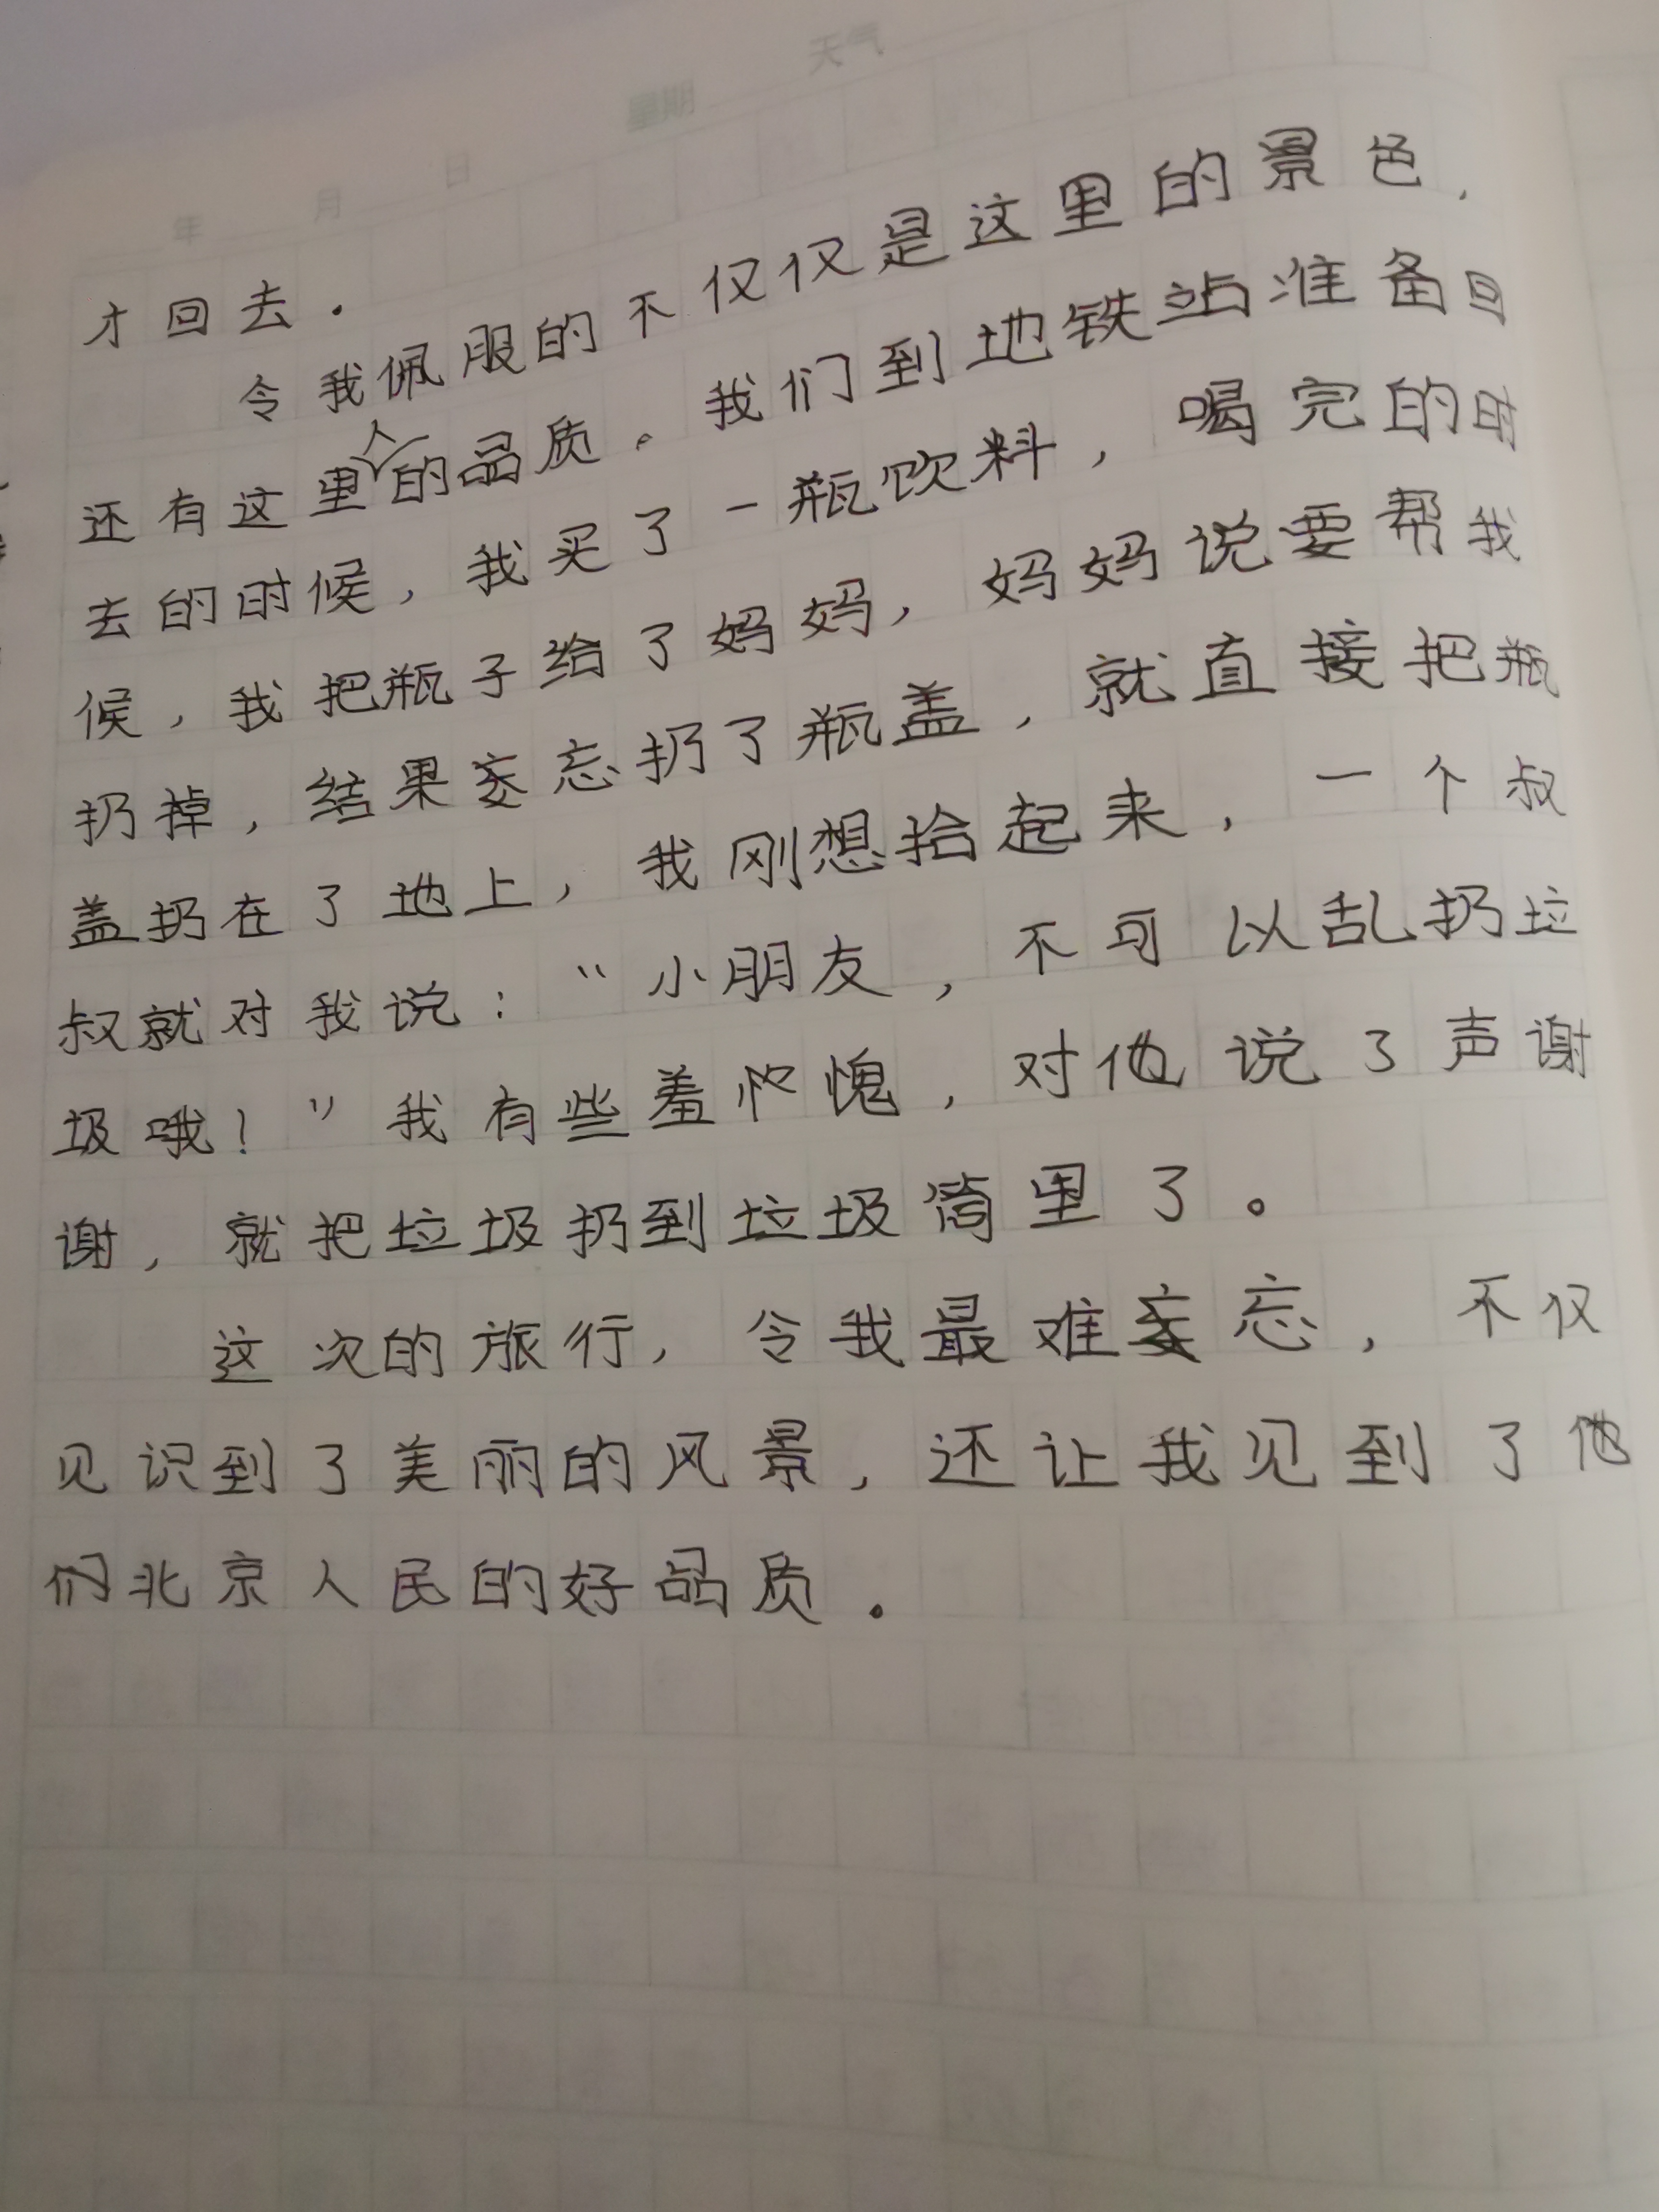 天气
星期
年 月 日
才回去.
令我佩服的不仅仅是这里的景色,
还有这里人的品质。我们到地铁站准备回
去的时候,我买了一瓶饮料,喝完的时
候,我把瓶子给了妈妈,妈妈说要帮我
扔掉,结果忘扔了瓶盖,就直接把瓶
盖扔在了地上,我刚想拾起来,一个叔
叔就对我说:“小朋友,不可以乱扔垃
圾哦!”我有些羞愧,对他说了声谢
谢,就把垃圾扔到垃圾筒里了。
这次的旅行,令我最难忘,不仅
见识到了美丽的风景,还让我见到了他
们北京人民的好品质.